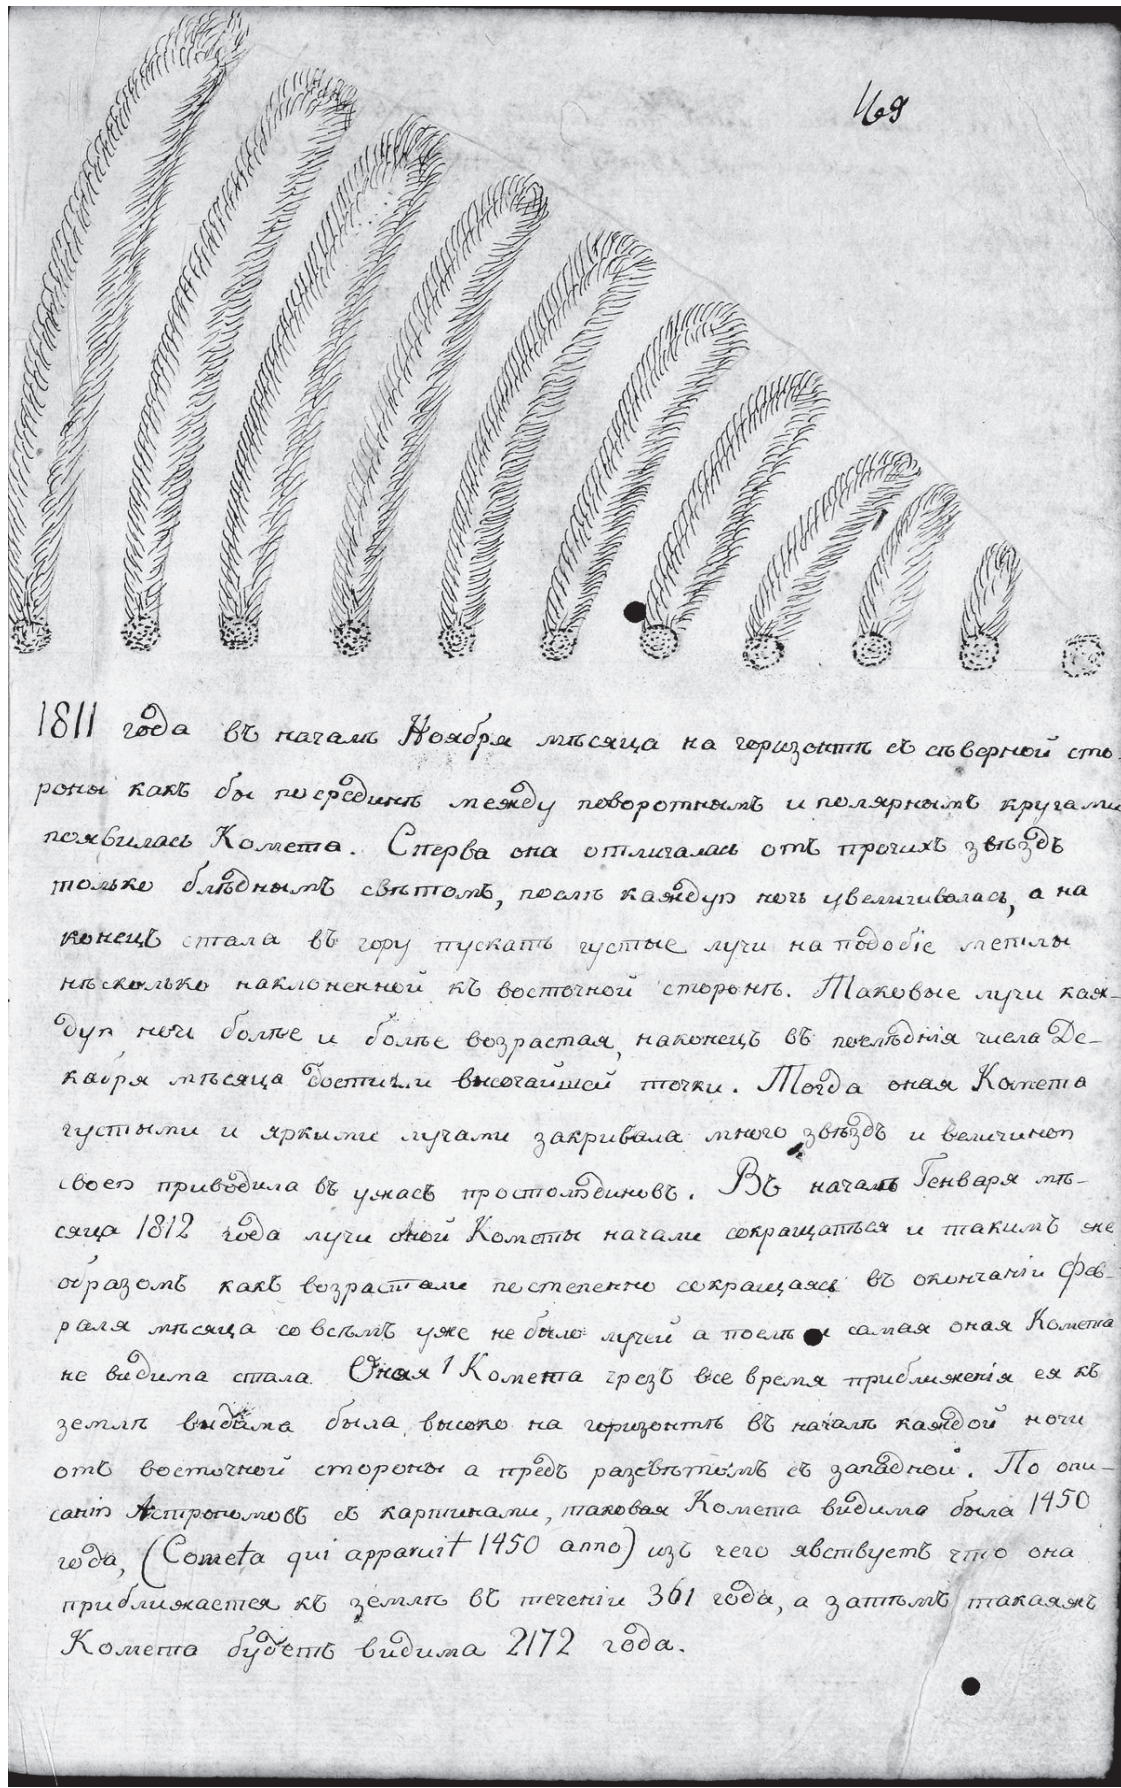 469
1811 года въ началѣ Ноября мѣсяца на горизонтѣ съ сѣверной сто-
роны какъ бы посрединѣ между поворотнымъ и полярнымъ кругами
появилась Комета. Сперва она отличалась отъ прочихъ звѣздъ
только блѣднымъ свѣтомъ, послѣ каждую ночь увеличивалась, а на
конецъ стала въ гору пускать густые лучи на подобіе метлы
нѣсколько наклоненной къ восточной сторонѣ. Таковые лучи каж-
дую ночь болѣе и болѣе возрастая, наконецъ въ послѣднія числа Де-
кабря мѣсяца достигли высочайшей точки. Тогда оная Комета
густыми и яркими лучами закривала много звѣздъ и величиною
своею приводила въ ужасъ простолюдиновъ. Въ началѣ Генваря мѣ-
сяца 1812 года лучи оной Кометы начали сокращаться и такимъ же
образомъ какъ возрастали постепенно сокращаясь въ окончаніи Фев-
раля мѣсяца совсѣмъ уже не было лучей а послѣ и самая оная Комета
не видима стала. Оная Комета чрезъ все время приближенія ея къ
землѣ видима была высоко на горизонтѣ въ началѣ каждой ночи
отъ восточной стороны а предъ разсвѣтомъ съ западной. По опи-
санію Астрономовъ съ картинами, таковая Комета видима была 1450
года, (Cometa qui apparuit 1450 anno) изъ чего явствуетъ что она
приближается къ землѣ въ теченіи 361 года, а затѣмъ такаяжъ
Комета будетъ видима 2172 года.